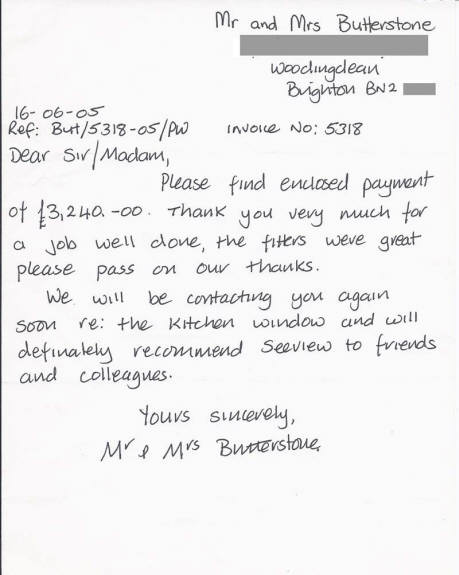 Mr and Mrs Butterstone
Woodingdean
Brighton BN2
16-06-05
Ref: But/5318-05/PW Invoice No: 5318
Dear Sir/Madam,
Please find enclosed payment
of £3,240.-00. Thank you very much for
a job well done, the fitters were great
please pass on our thanks.
We will be contacting you again
soon re: the kitchen window and will
definately recommend Seeview to friends
and colleagues.
Yours sincerely,
Mr & Mrs Butterstone